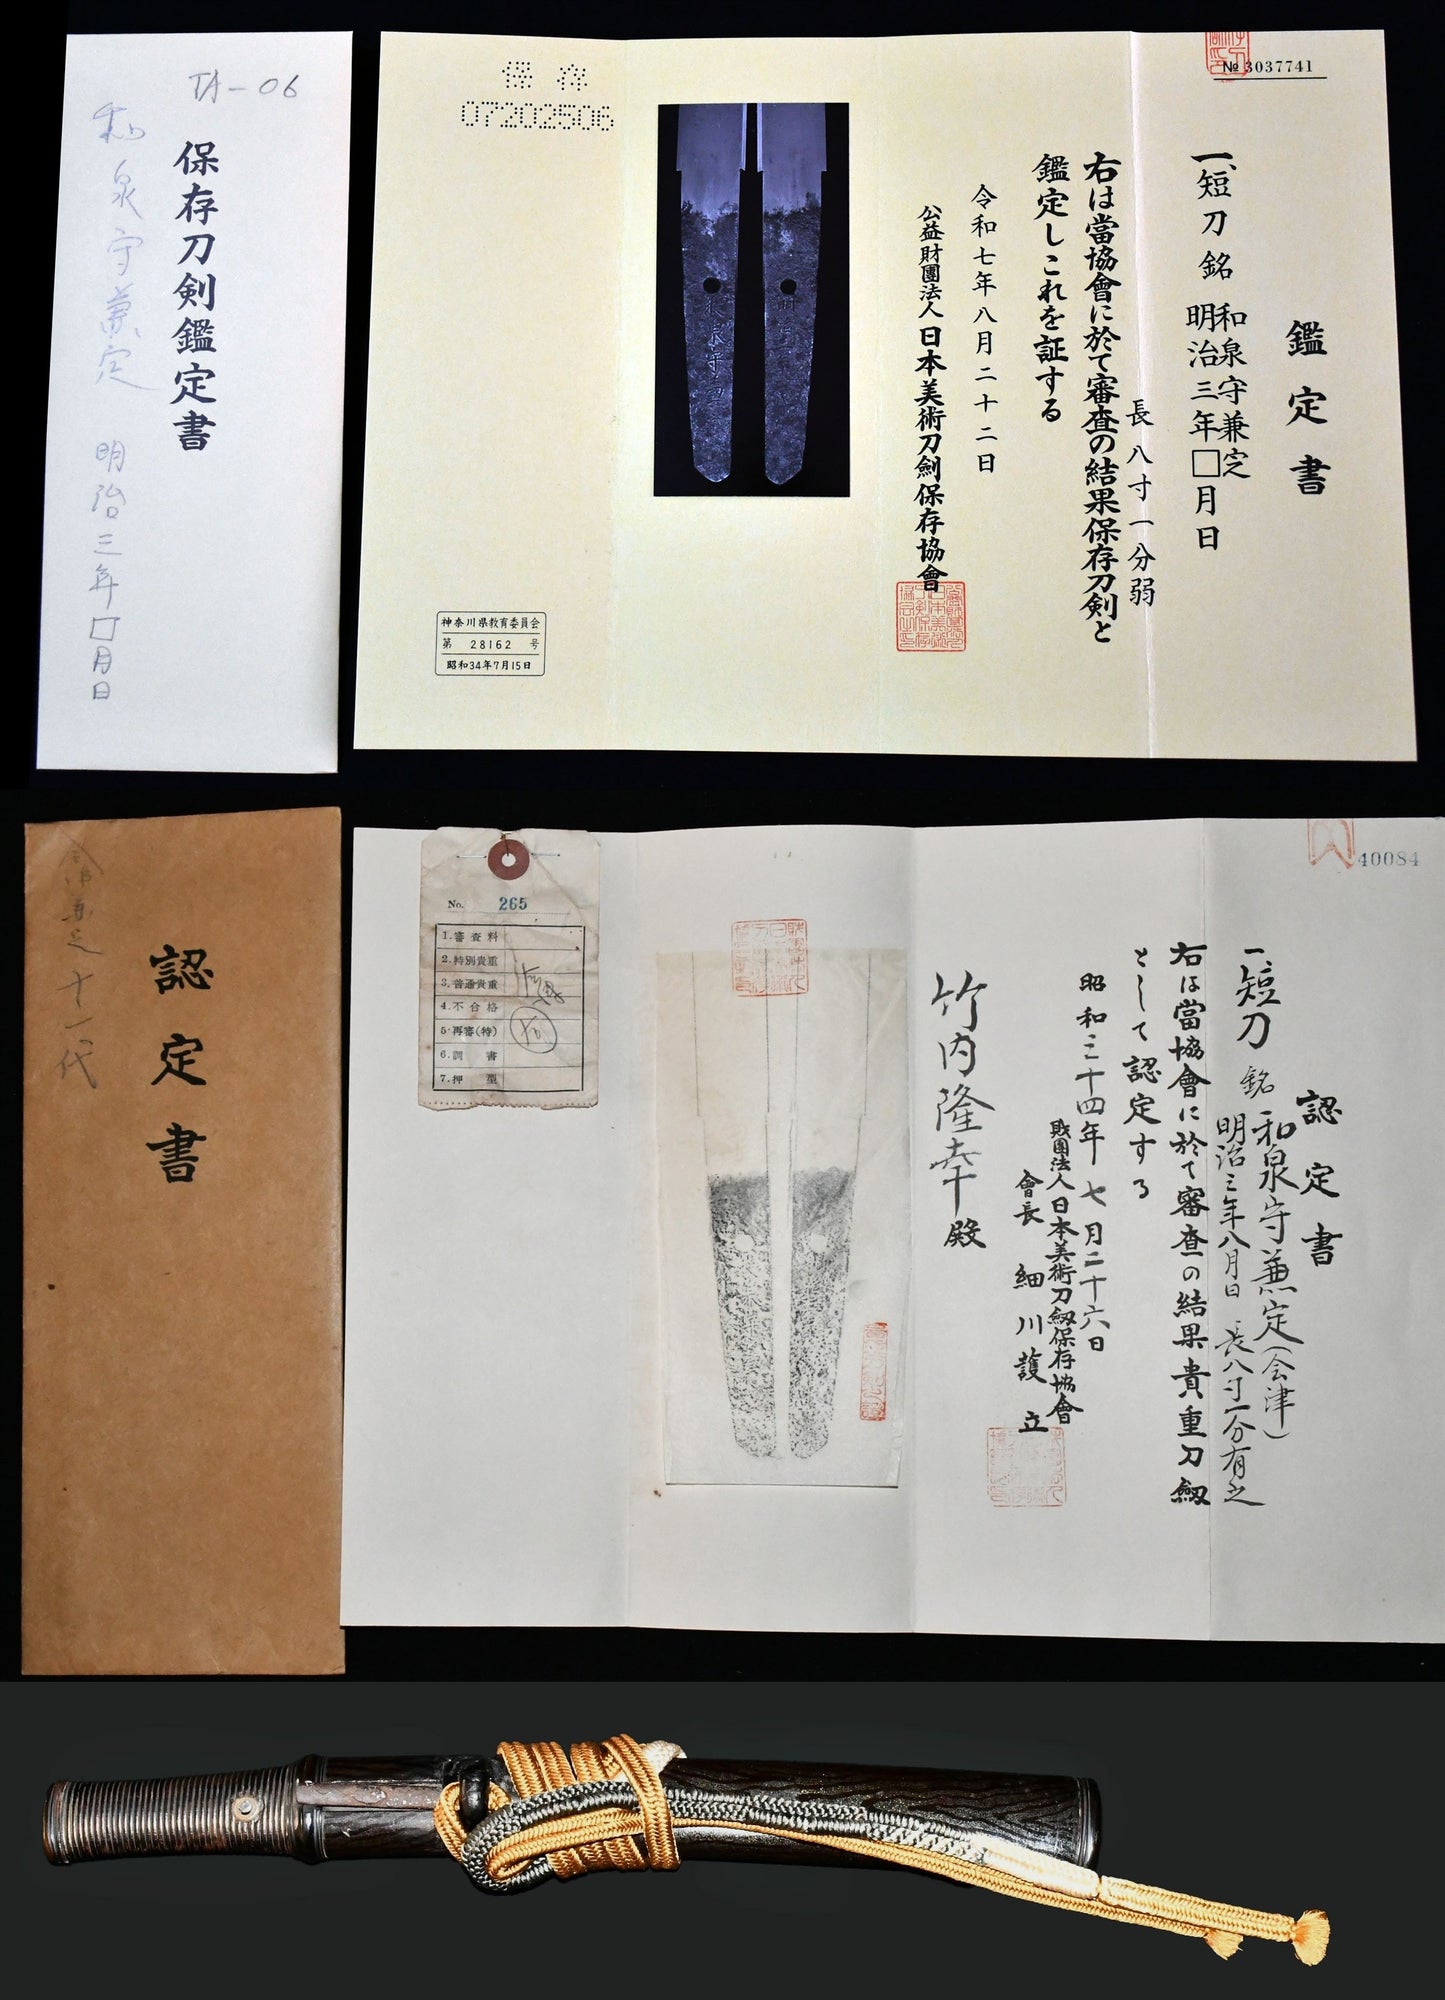 TA-06
保存刀剣鑑定書
和泉守兼定 明治三年□月日
№ 3037741
鑑定書
一、短刀 銘 和泉守兼定
明治三年□月日
長 八寸一分弱
右は當協會に於て審査の結果保存刀剣と
鑑定しこれを証する
令和七年八月二十二日
公益財團法人日本美術刀劍保存協會
保存
07202506
神奈川県教育委員会
第 28162 号
昭和34年7月15日
認定書
40084
認定書
一、短刀 銘 和泉守兼定(会津)
明治三年八月日 長八寸一分有之
右は當協會に於て審査の結果貴重刀劔
として認定する
昭和三十四年七月二十六日
財團法人日本美術刀劔保存協會
會長 細川護立
竹内隆幸殿
No. 265
1.審査料
2.特別貴重
3.普通貴重
4.不合格
5.再審(特)
6.調書
7.押型